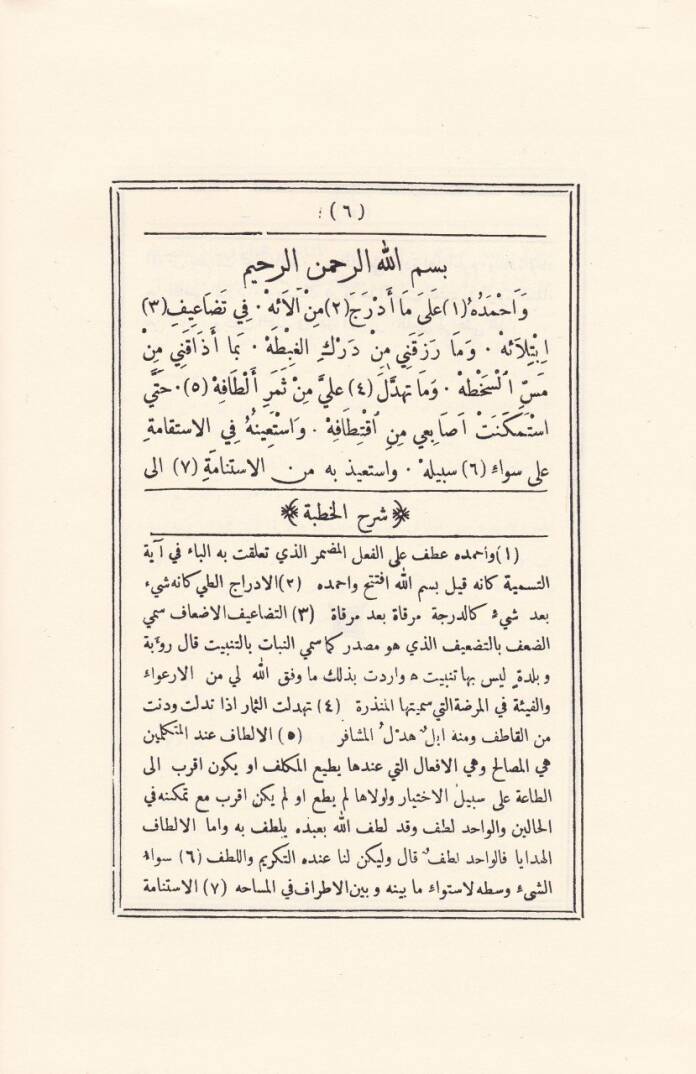 (٦)
بسم الله الرحمن الرحيم
وَاَحْمَدُهُ (١) عَلَىَ مَا أَدْرَجَ (٢) مِنْ آلَائِهْ ٠ فِي تَضَاعِيفِ (٣)
اِبْتِلَائِهْ ٠ وَمَا رَزَقَنِي مِنْ دَرْكِ الغِبْطَهْ ٠ بَمَا أَذَاقَنِي مِنْ
مَسِّ اْلسَّخْطَهْ ٠ وَمَا تَهدَّلَ (٤) عليَّ مِنْ ثَمَرِ أَلْطَافِهْ (٥) ٠ حَتَّي
اسْتَمَكَنَتْ اَصَابِعي مِنِ اقْتِطَافِهْ ٠ وَاسْتَعِينُهُ فِي الاستقامةِ
على سواءِ (٦) سبيلهْ ٠ واستعيذ به من الاستنامَةِ (٧) الى
شرح الخطبة
(١) واحمده عطف على الفعل المضمر الذي تعلقت به الباء في آية
التسمية كانه قيل بسم الله افتتح واحمده (٢) الادراج الطي كانه شيء
بعد شيء كالدرجة مرقاة بعد مرقاة (٣) التضاعيف الاضعاف سمي
الضعف بالتضعيف الذي هو مصدر كما سمي النبات بالتنبيت قال روبة
وبلدةٍ ليس بها تنبيت ه واردت بذلك ما وفق الله لي من الارعواء
والفيئة في المرضة التي سميتها المنذرة (٤) تهدلت الثمار اذا تدلت ودنت
من القاطف ومنه ابلٌ هدلُ المشافر (٥) الالطاف عند المتكلمين
هي المصالح وهي الافعال التي عندها يطيع المكلف او يكون اقرب الى
الطاعة على سبيل الاختيار ولولاها لم يطع او لم يكن اقرب مع تمكنه في
الحالين والواحد لطف وقد لطف الله بعبده يلطف به واما الالطاف
الهدايا فالواحد لطفٌ قال وليكن لنا عنده التكريم واللطف (٦) سواء
الشيء وسطه لاستواء ما بينه وبين الاطراف في المساحه (٧) الاستنامة